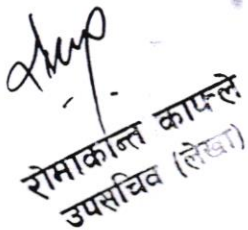 रोमाकान्त काफ्ले
उपसचिव (लेखा)